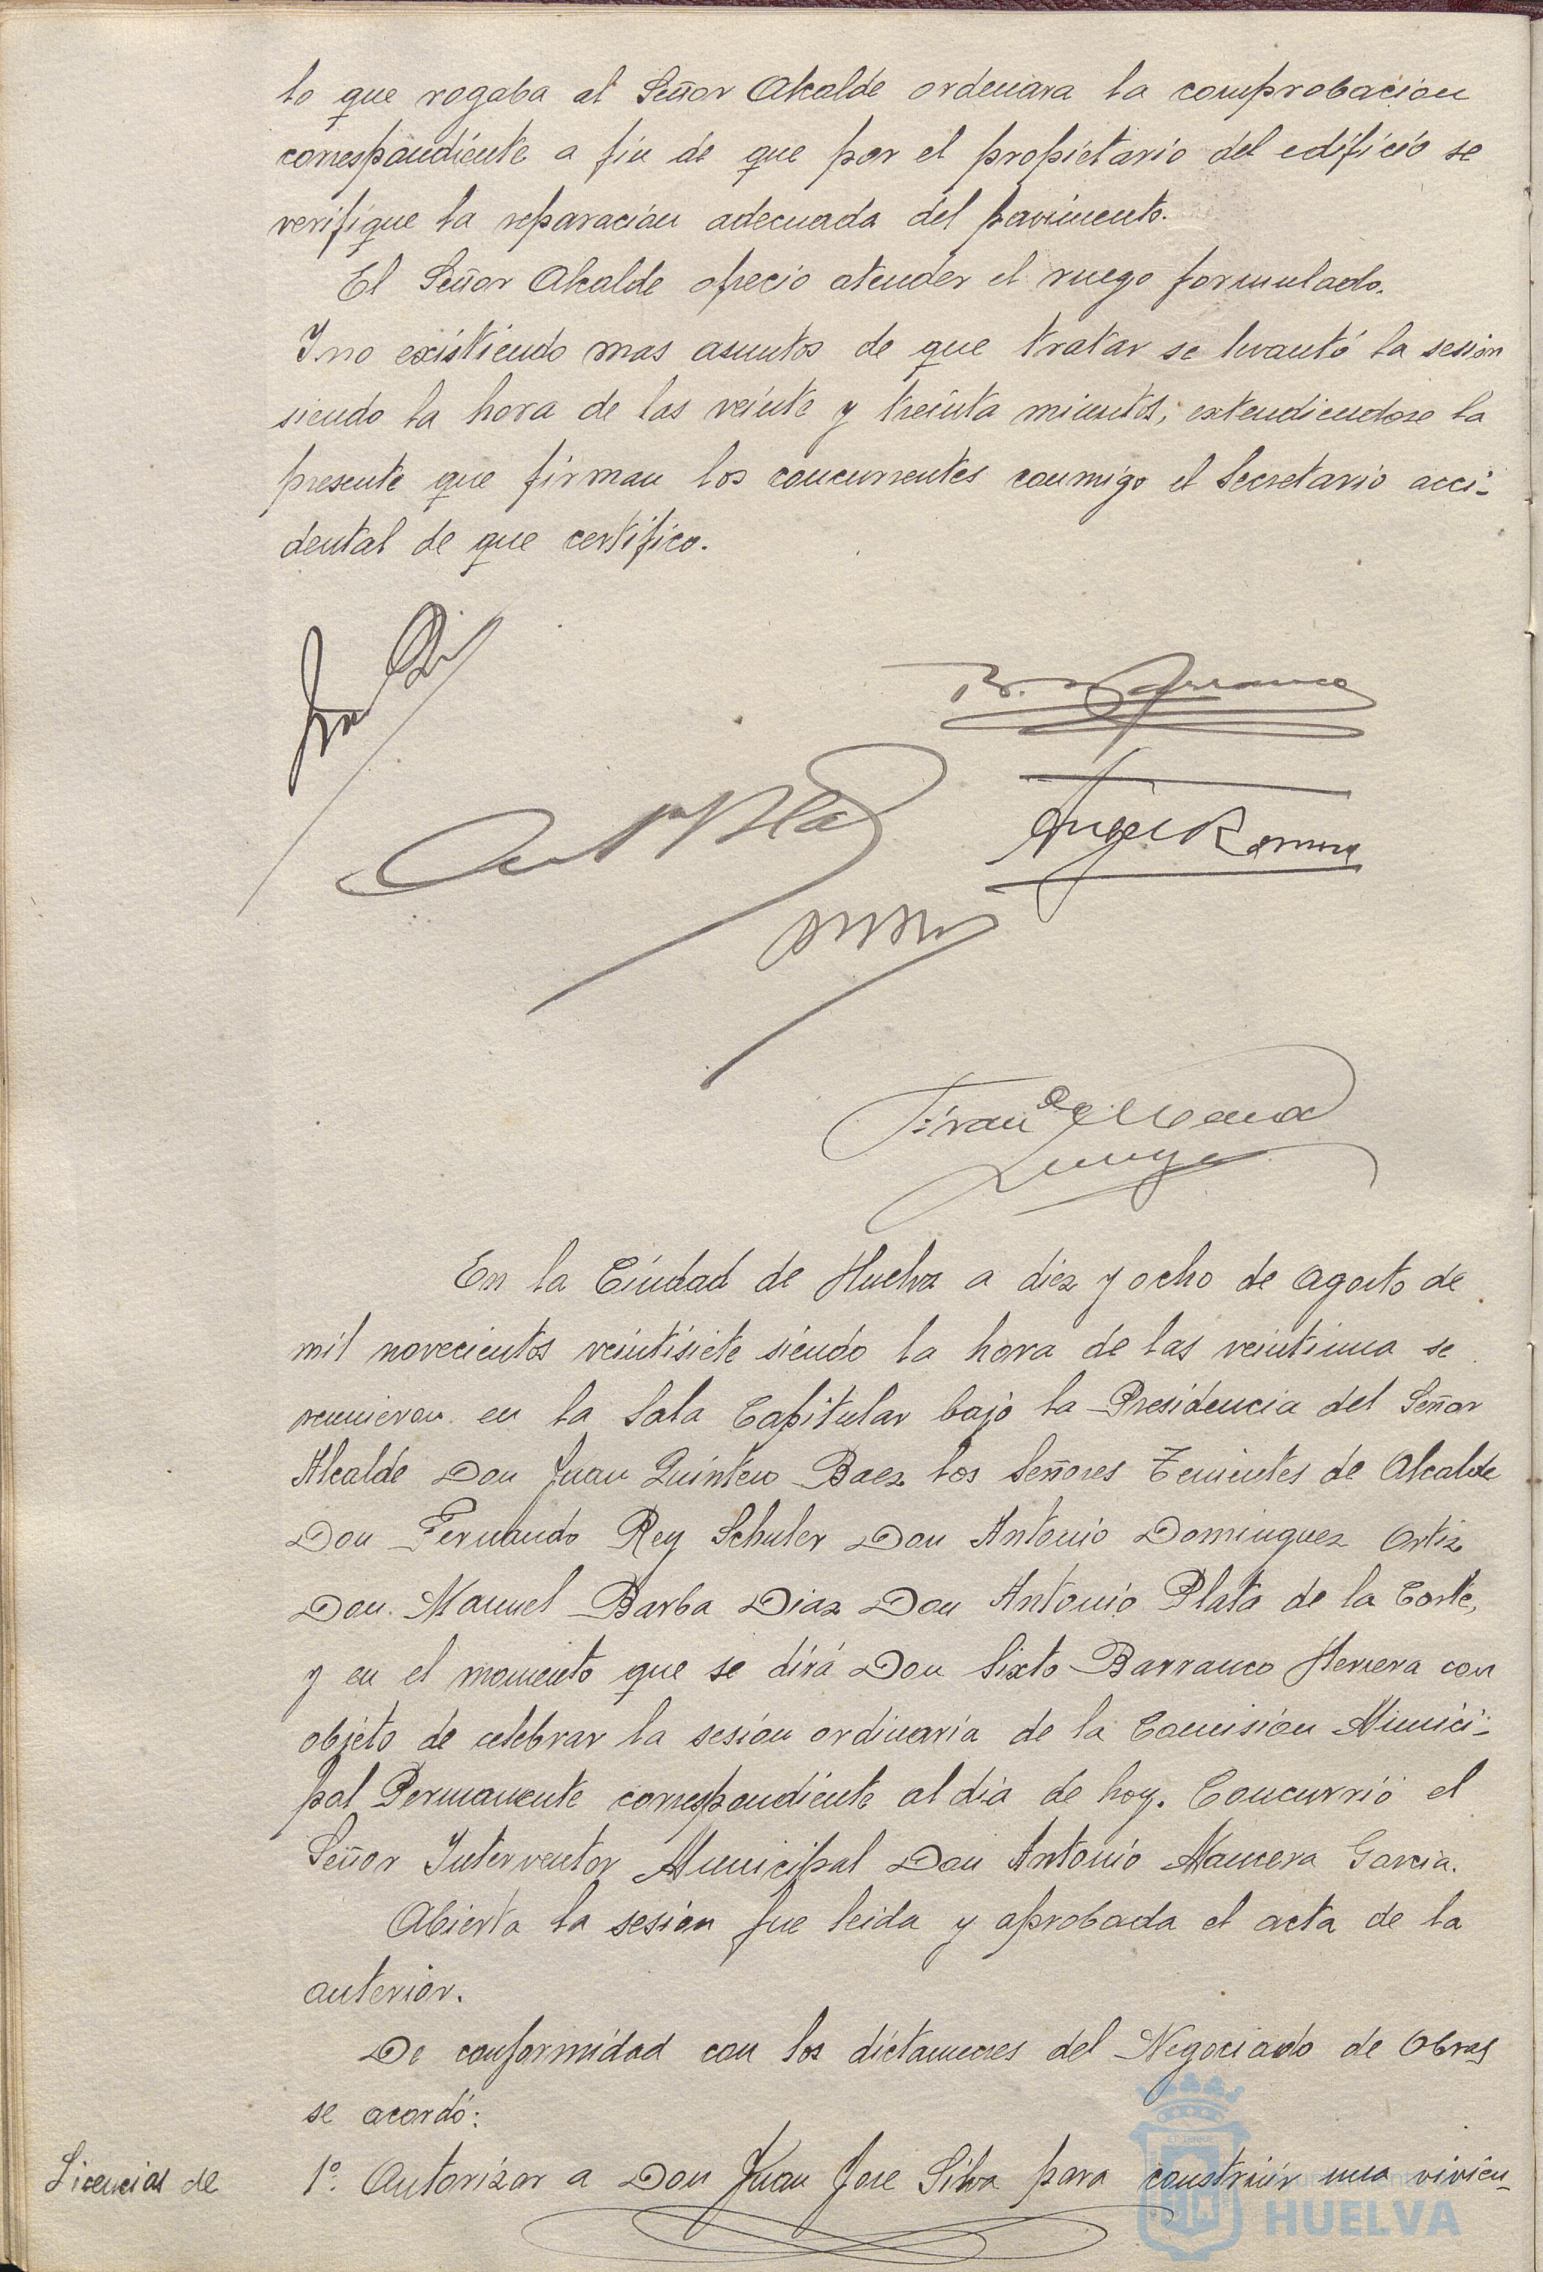 lo que rogaba al Señor Alcalde ordenara la comprobacion
correspondiente a fin de que por el propietario del edificio se
verifique la reparacion adecuada del pavimento.
El Señor Alcalde ofrecio atender el ruego formulado.
Y no existiendo mas asuntos de que tratar se levantó la sesion
siendo la hora de las veinte y treinta minutos, extendiendose la
presente que firman los concurrentes conmigo el Secretario acci-
dental de que certifico.
Angel Romero
En la Ciudad de Huelva a diez y ocho de Agosto de
mil novecientos veintisiete siendo la hora de las veintiuna se
reunieron en la Sala Capitular bajo la Presidencia del Señor
Alcalde Don Juan Quintero Baez los Señores Tenientes de Alcalde
Don Fernando Rey Schuler Don Antonio Dominguez Ortiz
Don Manuel Barba Diaz Don Antonio Plata de la Corte,
y en el momento que se dirá Don Sixto Barranco Herrera con
objeto de celebrar la sesion ordinaria de la Comision Munici-
pal Permanente correspondiente al dia de hoy. Concurrió el
Señor Interventor Municipal Don Antonio Mancera Garcia.
Abierta la sesion fue leida y aprobada el acta de la
anterior.
De conformidad con los dictamenes del Negociado de Obras
se acordó:
Licencias de
1º. Autorizar a Don Juan Jose Silva para construir una vivien-
HUELVA